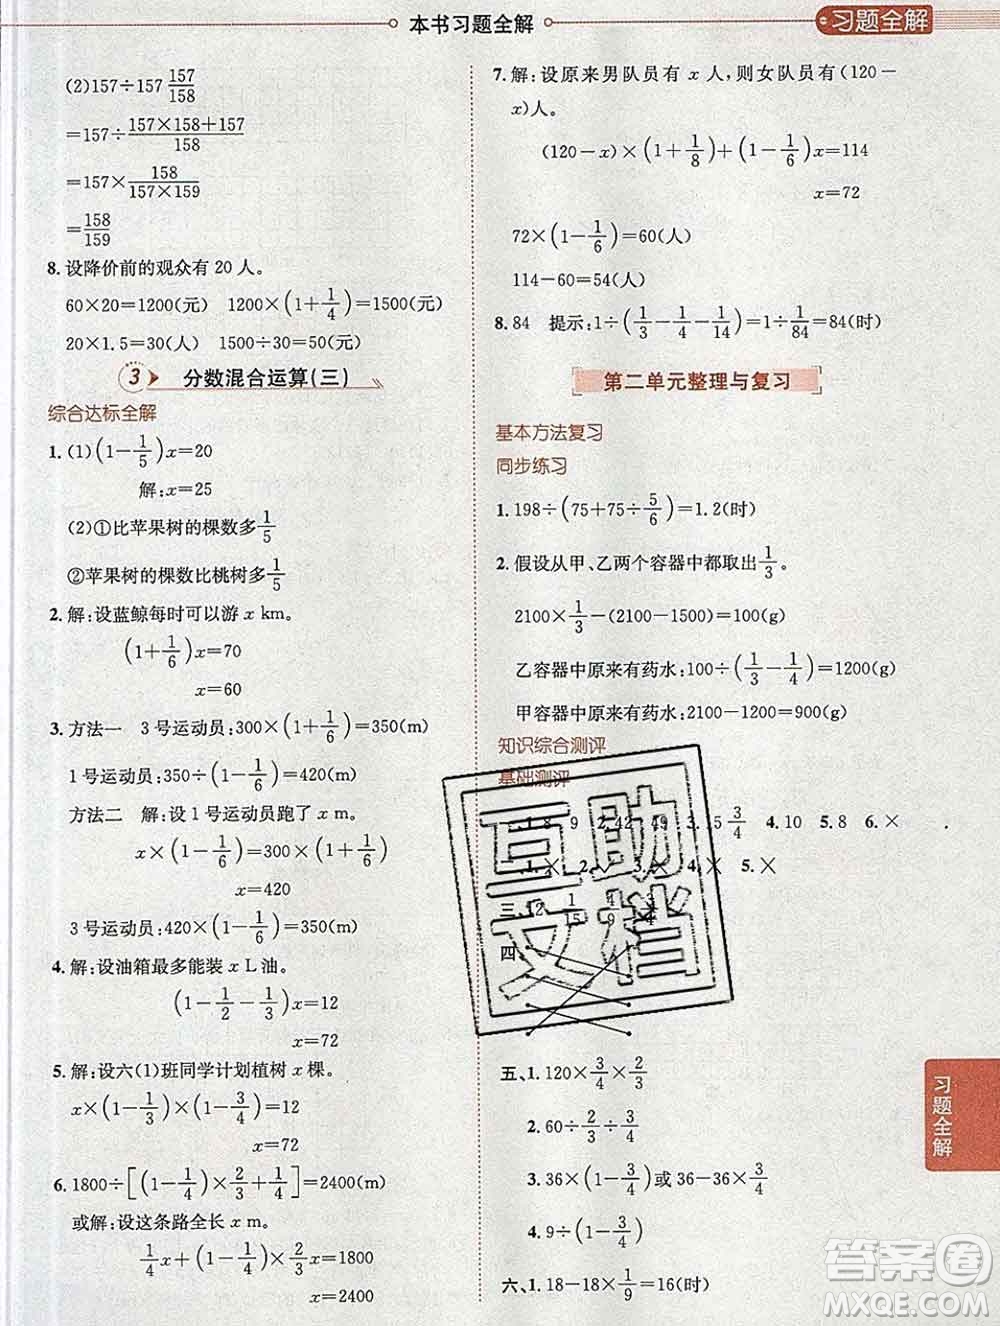 本书习题全解
习题全解
(2)157÷157 157/158
=157÷(157×158+157)/158
=157×158/(157×159)
=158/159
8. 设降价前的观众有 20 人。
60×20=1200(元) 1200×(1+1/4)=1500(元)
20×1.5=30(人) 1500÷30=50(元)
3 分数混合运算(三)
综合达标全解
1. (1)(1-1/5)x=20
解:x=25
(2)①比苹果树的棵数多1/5
②苹果树的棵数比桃树多1/5
2. 解:设蓝鲸每时可以游 x km。
(1+1/6)x=70
x=60
3. 方法一 3 号运动员:300×(1+1/6)=350(m)
1 号运动员:350÷(1-1/6)=420(m)
方法二 解:设 1 号运动员跑了 x m。
x×(1-1/6)=300×(1+1/6)
x=420
3 号运动员:420×(1-1/6)=350(m)
4. 解:设油箱最多能装 x L 油。
(1-1/2-1/3)x=12
x=72
5. 解:设六(1)班同学计划植树 x 棵。
x×(1-1/3)×(1-3/4)=12
x=72
6. 1800÷[(1-1/4)×2/3+1/4]=2400(m)
或解:设这条路全长 x m。
1/4x+(1-1/4)x×2/3=1800
x=2400
7. 解:设原来男队员有 x 人,则女队员有(120-
x)人。
(120-x)×(1+1/8)+(1-1/6)x=114
x=72
72×(1-1/6)=60(人)
114-60=54(人)
8. 84 提示:1÷(1/3-1/4-1/14)=1÷1/84=84(时)
第二单元整理与复习
基本方法复习
同步练习
1. 198÷(75+75÷5/6)=1.2(时)
2. 假设从甲、乙两个容器中都取出1/3。
2100×1/3-(2100-1500)=100(g)
乙容器中原来有药水:100÷(1/3-1/4)=1200(g)
甲容器中原来有药水:2100-1200=900(g)
知识综合测评
基础测评
1.8 9 2.42 49 3. 15 3/4 4.10 5.8 6.×
1.× 2.✓ 3.× 4.× 5.×
三、12 1/15 4/9 3/4
四、
五、1. 120×3/4×2/3
2. 60÷2/3÷3/4
3. 36×(1-3/4)或 36-36×3/4
4. 9÷(1-3/4)
六、1. 18-18×1/9=16(时)
习题全解
互助
文档
答案圈
MXQE.COM